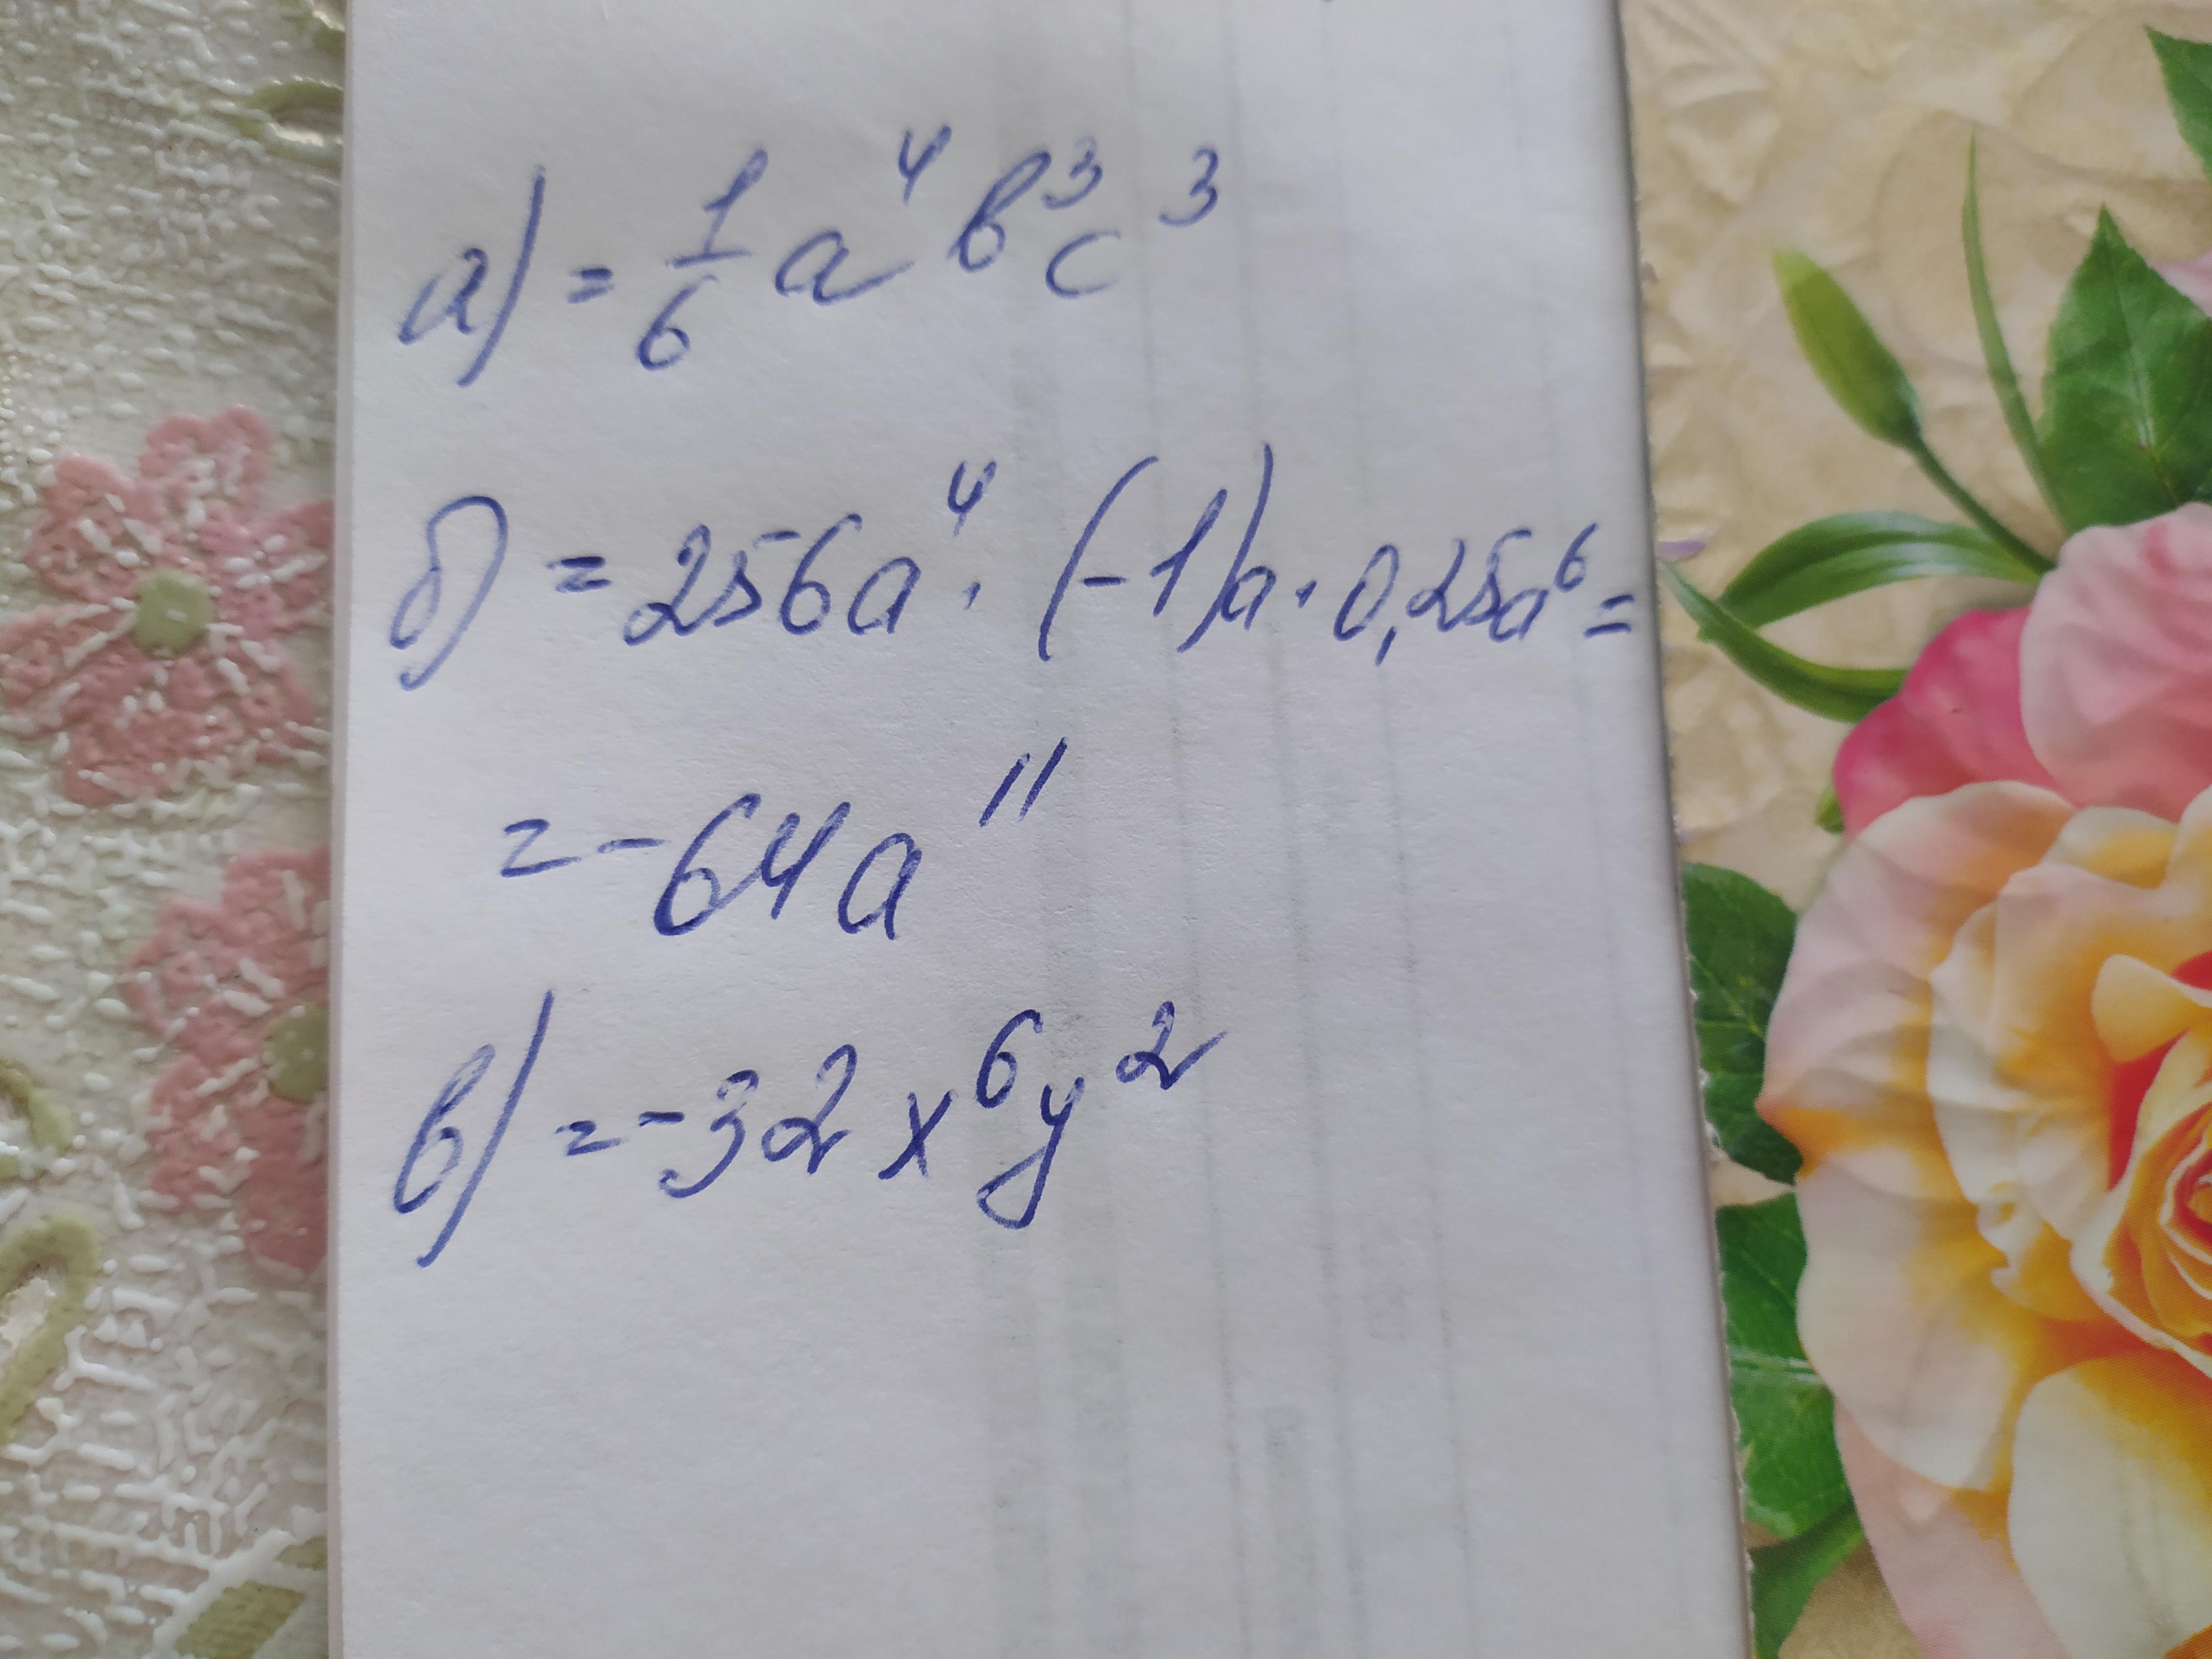 а) = 1/6 a⁴ b³ c³
б) = 256a⁴ · (-1)a · 0,25a⁶ =
= -64a¹¹
в) = -32x⁶y²